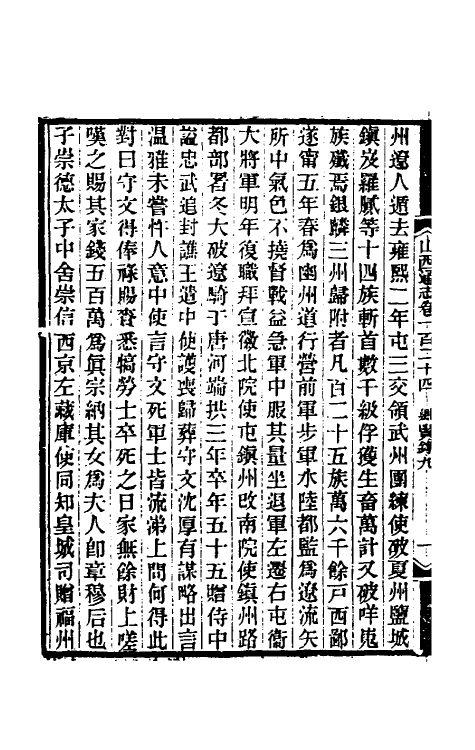 山西通志卷一百二十四　鄉賢錄九
州遼人遁去雍熙二年屯三交領武州團練使破夏州鹽城
鎮岌羅膩等十四族斬首數千級俘獲生畜萬計又破咩嵬
族殲焉銀麟三州歸附者凡百二十五族萬六千餘戸西鄙
遂甯五年春為幽州道行營前軍步軍水陸都監為遼流矢
所中氣色不撓督戰益急軍中服其量坐退軍左遷右屯衛
大將軍明年復職拜宣徽北院使屯鎮州改南院使鎮州路
都部署冬大破遼騎于唐河端拱三年卒年五十五贈侍中
諡忠武追封譙王遣中使護喪歸葬守文沈厚有謀略出言
温雅未嘗忤人意中使言守文死軍士皆流涕上問何得此
對曰守文得俸祿賜賚悉犒勞士卒死之日家無餘財上嗟
嘆之賜其家錢五百萬為眞宗納其女為夫人卽章穆后也
子崇德太子中舍崇信西京左藏庫使同知皇城司贈福州